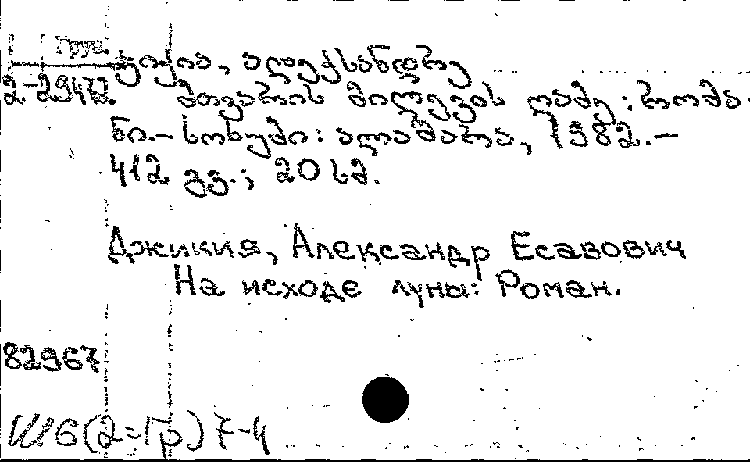 Груз.
2-29472
ჯიქია, ალექსანდრე
მთვარის მილევის ღამე: რომა-
ნი.- სოხუმი: ალაშარა, 1982.-
412 გვ.; 20 სმ.
Джикия, Александр Есавович
На исходе луны: Роман.
82967
Ш6(2=Гр)7-4